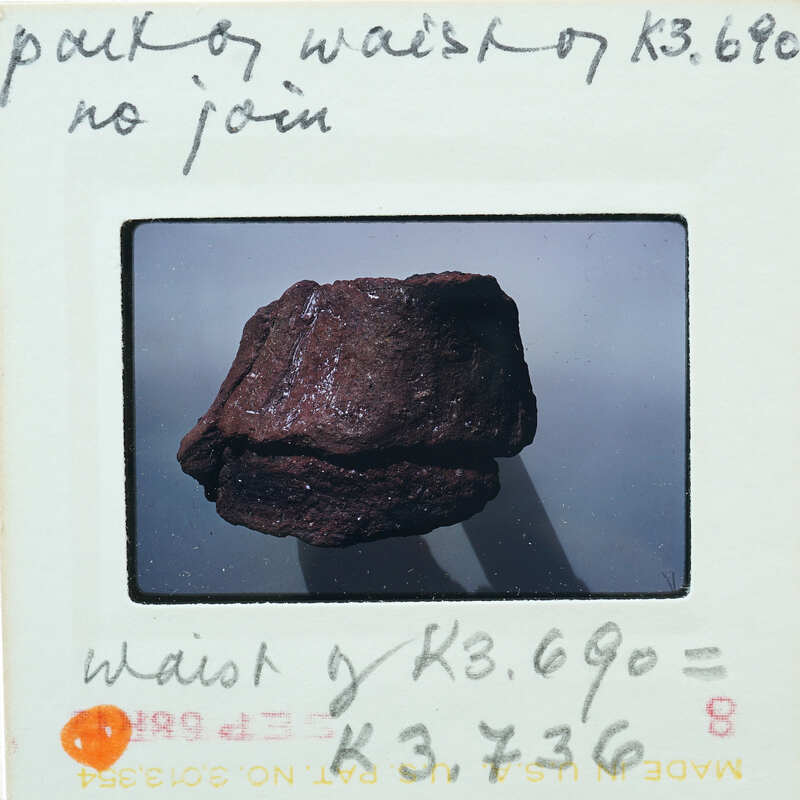 part of waist of K3.690
no join
waist of K3.690 =
K3.736
SEP 68
8
MADE IN U.S.A. U.S. PAT. NO. 3,013,354